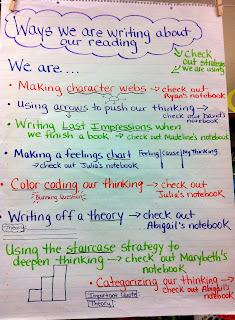 Ways we are writing about
our reading
check
out strategies
we are using
We are....
• Making character webs → check out
Ryan's notebook
• Using arrows to push our thinking →
check out David's
notebook
• Writing Last Impressions when
we finish a book → check out Madeline's notebook
• Making a feelings chart
Feeling | Cause | My Thinking
→ check out Julia's notebook
• Color coding our thinking → check out
Julia's notebook
Burning Question
• Writing off a theory → check out
Abigail's notebook
Theory
Using the staircase strategy to
deepen thinking → check out Marybeth's
notebook
• Categorizing our thinking →
check out Abigail's
notebook
Important Quote
Theory